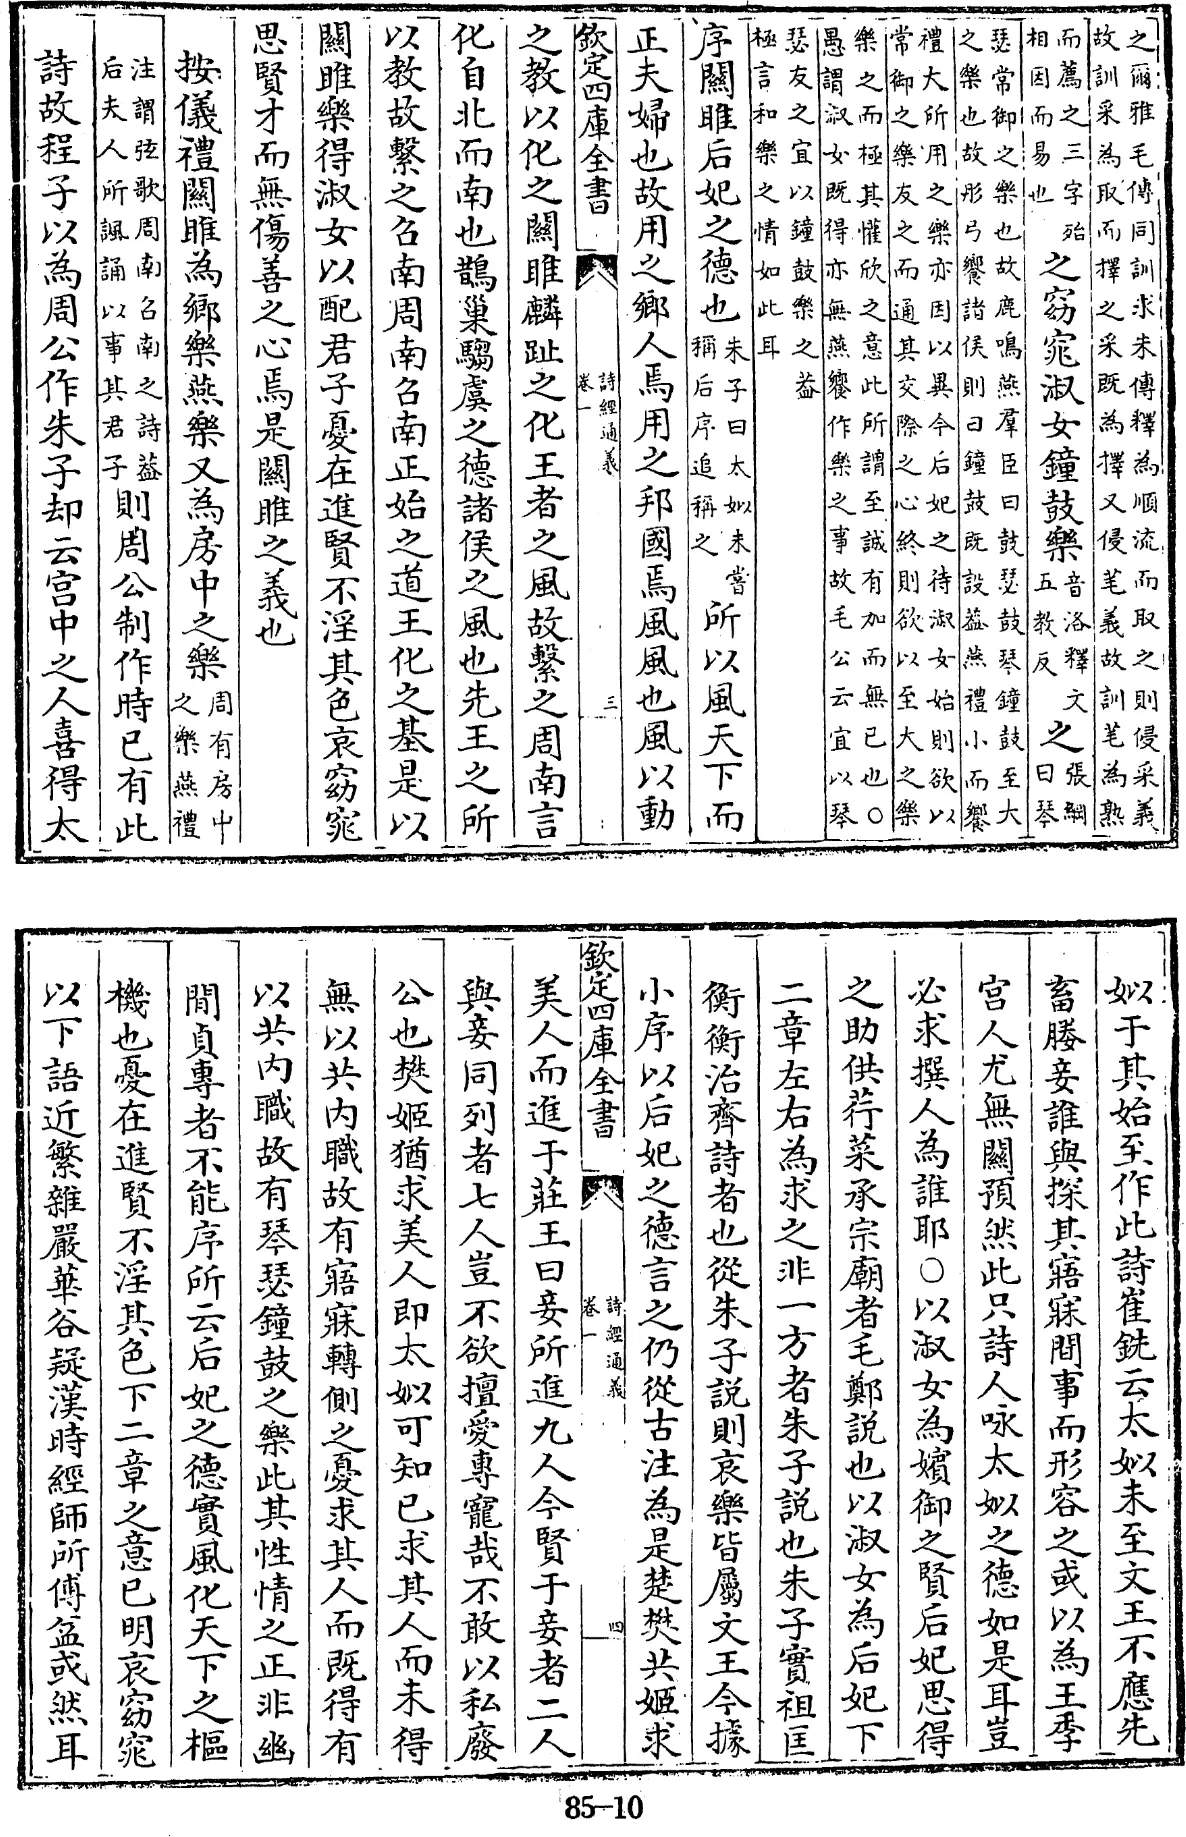 之爾雅毛傳同訓求朱傳釋為順流而取之則侵采義
故訓采為取而擇之采既為擇又侵芼義故訓芼為熟
而薦之三字殆
相因而易也
之窈窕淑女鐘鼓樂
音洛釋文
五教反
之
張綱
曰琴
瑟常御之樂也故鹿鳴燕羣臣曰鼓瑟鼓琴鐘鼓至大
之樂也故彤弓饗諸侯則曰鐘鼓既設葢燕禮小而饗
禮大所用之樂亦因以異今后妃之待淑女始則欲以
常御之樂友之而通其交際之心終則欲以至大之樂
樂之而極其懽欣之意此所謂至誠有加而無已也○
愚謂淑女既得亦無燕饗作樂之事故毛公云宜以琴
瑟友之宜以鐘鼓樂之葢
極言和樂之情如此耳
序關雎后妃之德也
朱子曰太姒未嘗
稱后序追稱之
所以風天下而
正夫婦也故用之鄉人焉用之邦國焉風風也風以動
欽定四庫全書
詩經通義
卷一
三
之教以化之關雎麟趾之化王者之風故繫之周南言
化自北而南也鵲巢騶虞之德諸侯之風也先王之所
以教故繫之召南周南召南正始之道王化之基是以
關雎樂得淑女以配君子憂在進賢不淫其色哀窈窕
思賢才而無傷善之心焉是關雎之義也
按儀禮關雎為鄉樂燕樂又為房中之樂
周有房中
之樂燕禮
注謂弦歌周南召南之詩葢
后夫人所諷誦以事其君子
則周公制作時已有此
詩故程子以為周公作朱子却云宮中之人喜得太
姒于其始至作此詩崔銑云太姒未至文王不應先
畜媵妾誰與探其寤寐間事而形容之或以為王季
宮人尤無關預然此只詩人咏太姒之德如是耳豈
必求撰人為誰耶○以淑女為嬪御之賢后妃思得
之助供荇菜承宗廟者毛鄭説也以淑女為后妃下
二章左右為求之非一方者朱子説也朱子實祖匡
衡衡治齊詩者也從朱子説則哀樂皆屬文王今據
小序以后妃之德言之仍從古注為是楚樊共姬求
欽定四庫全書
詩經通義
卷一
四
美人而進于莊王曰妾所進九人今賢于妾者二人
與妾同列者七人豈不欲擅愛專寵哉不敢以私廢
公也樊姬猶求美人即太姒可知已求其人而未得
無以共内職故有寤寐轉側之憂求其人而既得有
以共内職故有琴瑟鐘鼓之樂此其性情之正非幽
閒貞專者不能序所云后妃之德實風化天下之樞
機也憂在進賢不淫其色下二章之意已明哀窈窕
以下語近繁雜嚴華谷疑漢時經師所傅益或然耳
85-10